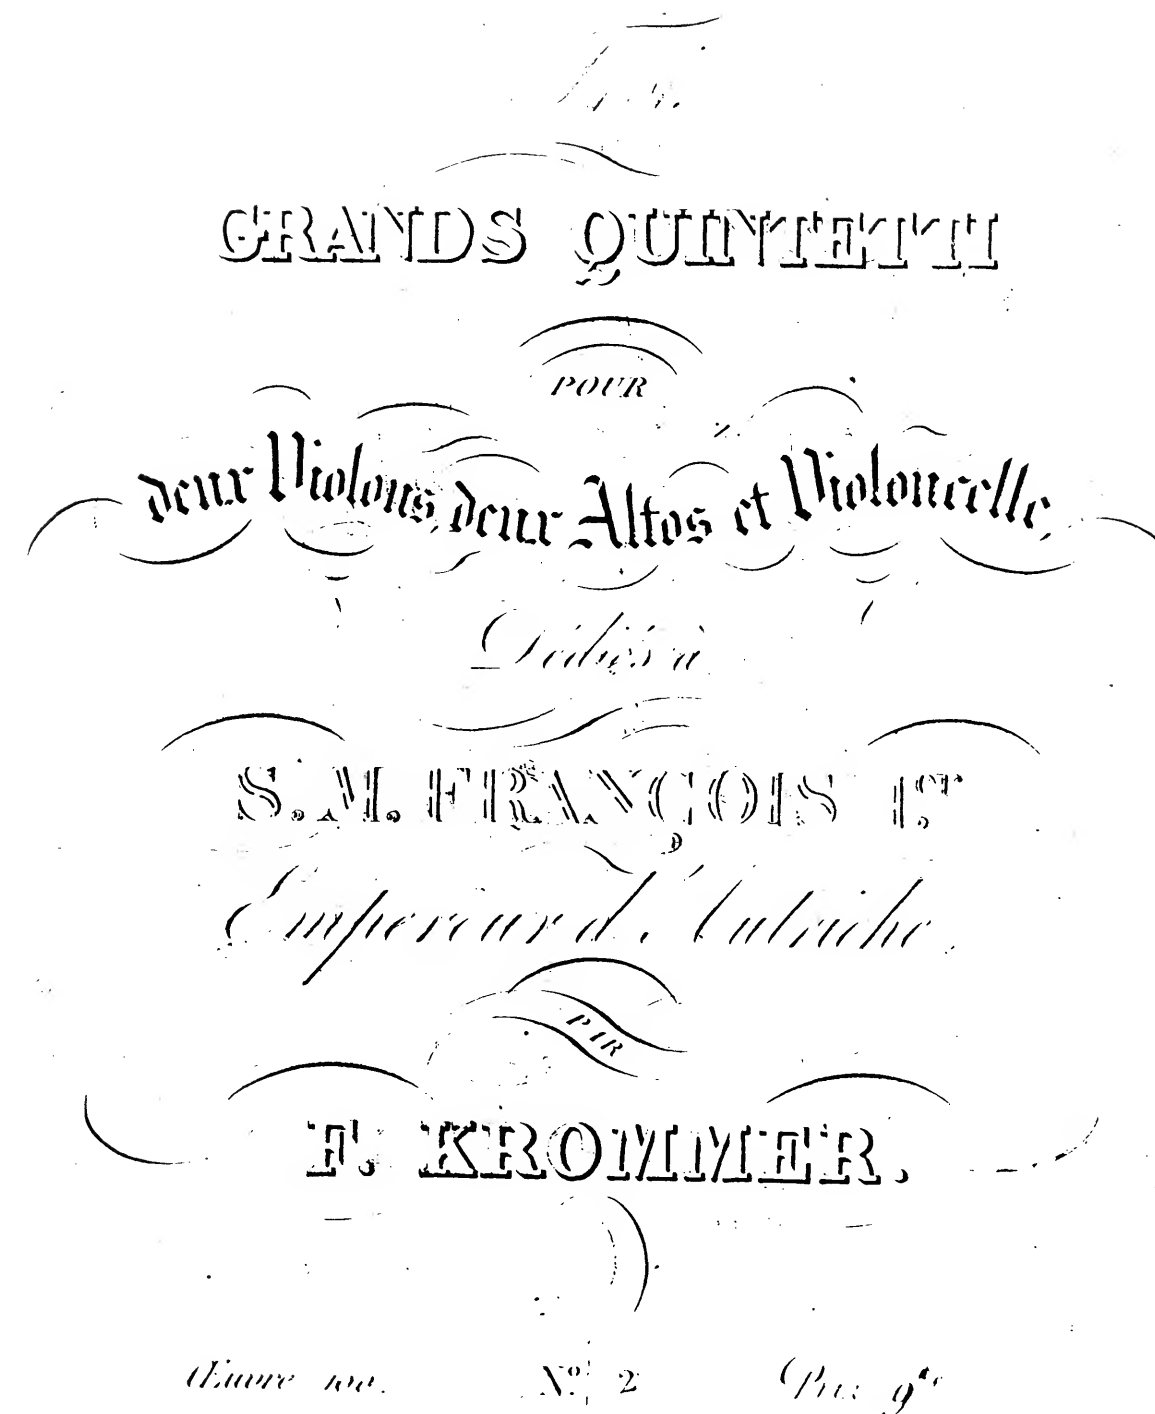 GRANDS QUINTETTI
POUR
deux Violons, deux Altos et Violoncelle,
Dédiés à
S. M. FRANÇOIS 1.er
Empereur d'Autriche.
PAR
F. KROMMER.
Œuvre 100. Nº. 2 Prix 9